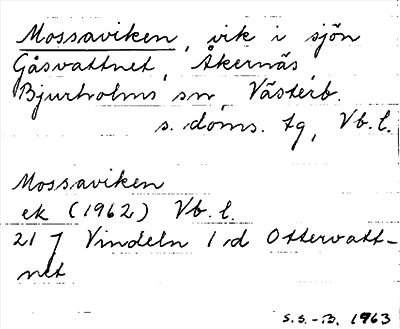 Mossaviken, vik i sjön
Gåsvattnet, Åkernäs,
Bjurholms sn, Västerb.
s. doms. tg, Vb. l.
Mossaviken
ek (1962) Vb. l.
21 J Vindeln 1 d Ottervatt-
net
S.S.-B. 1963